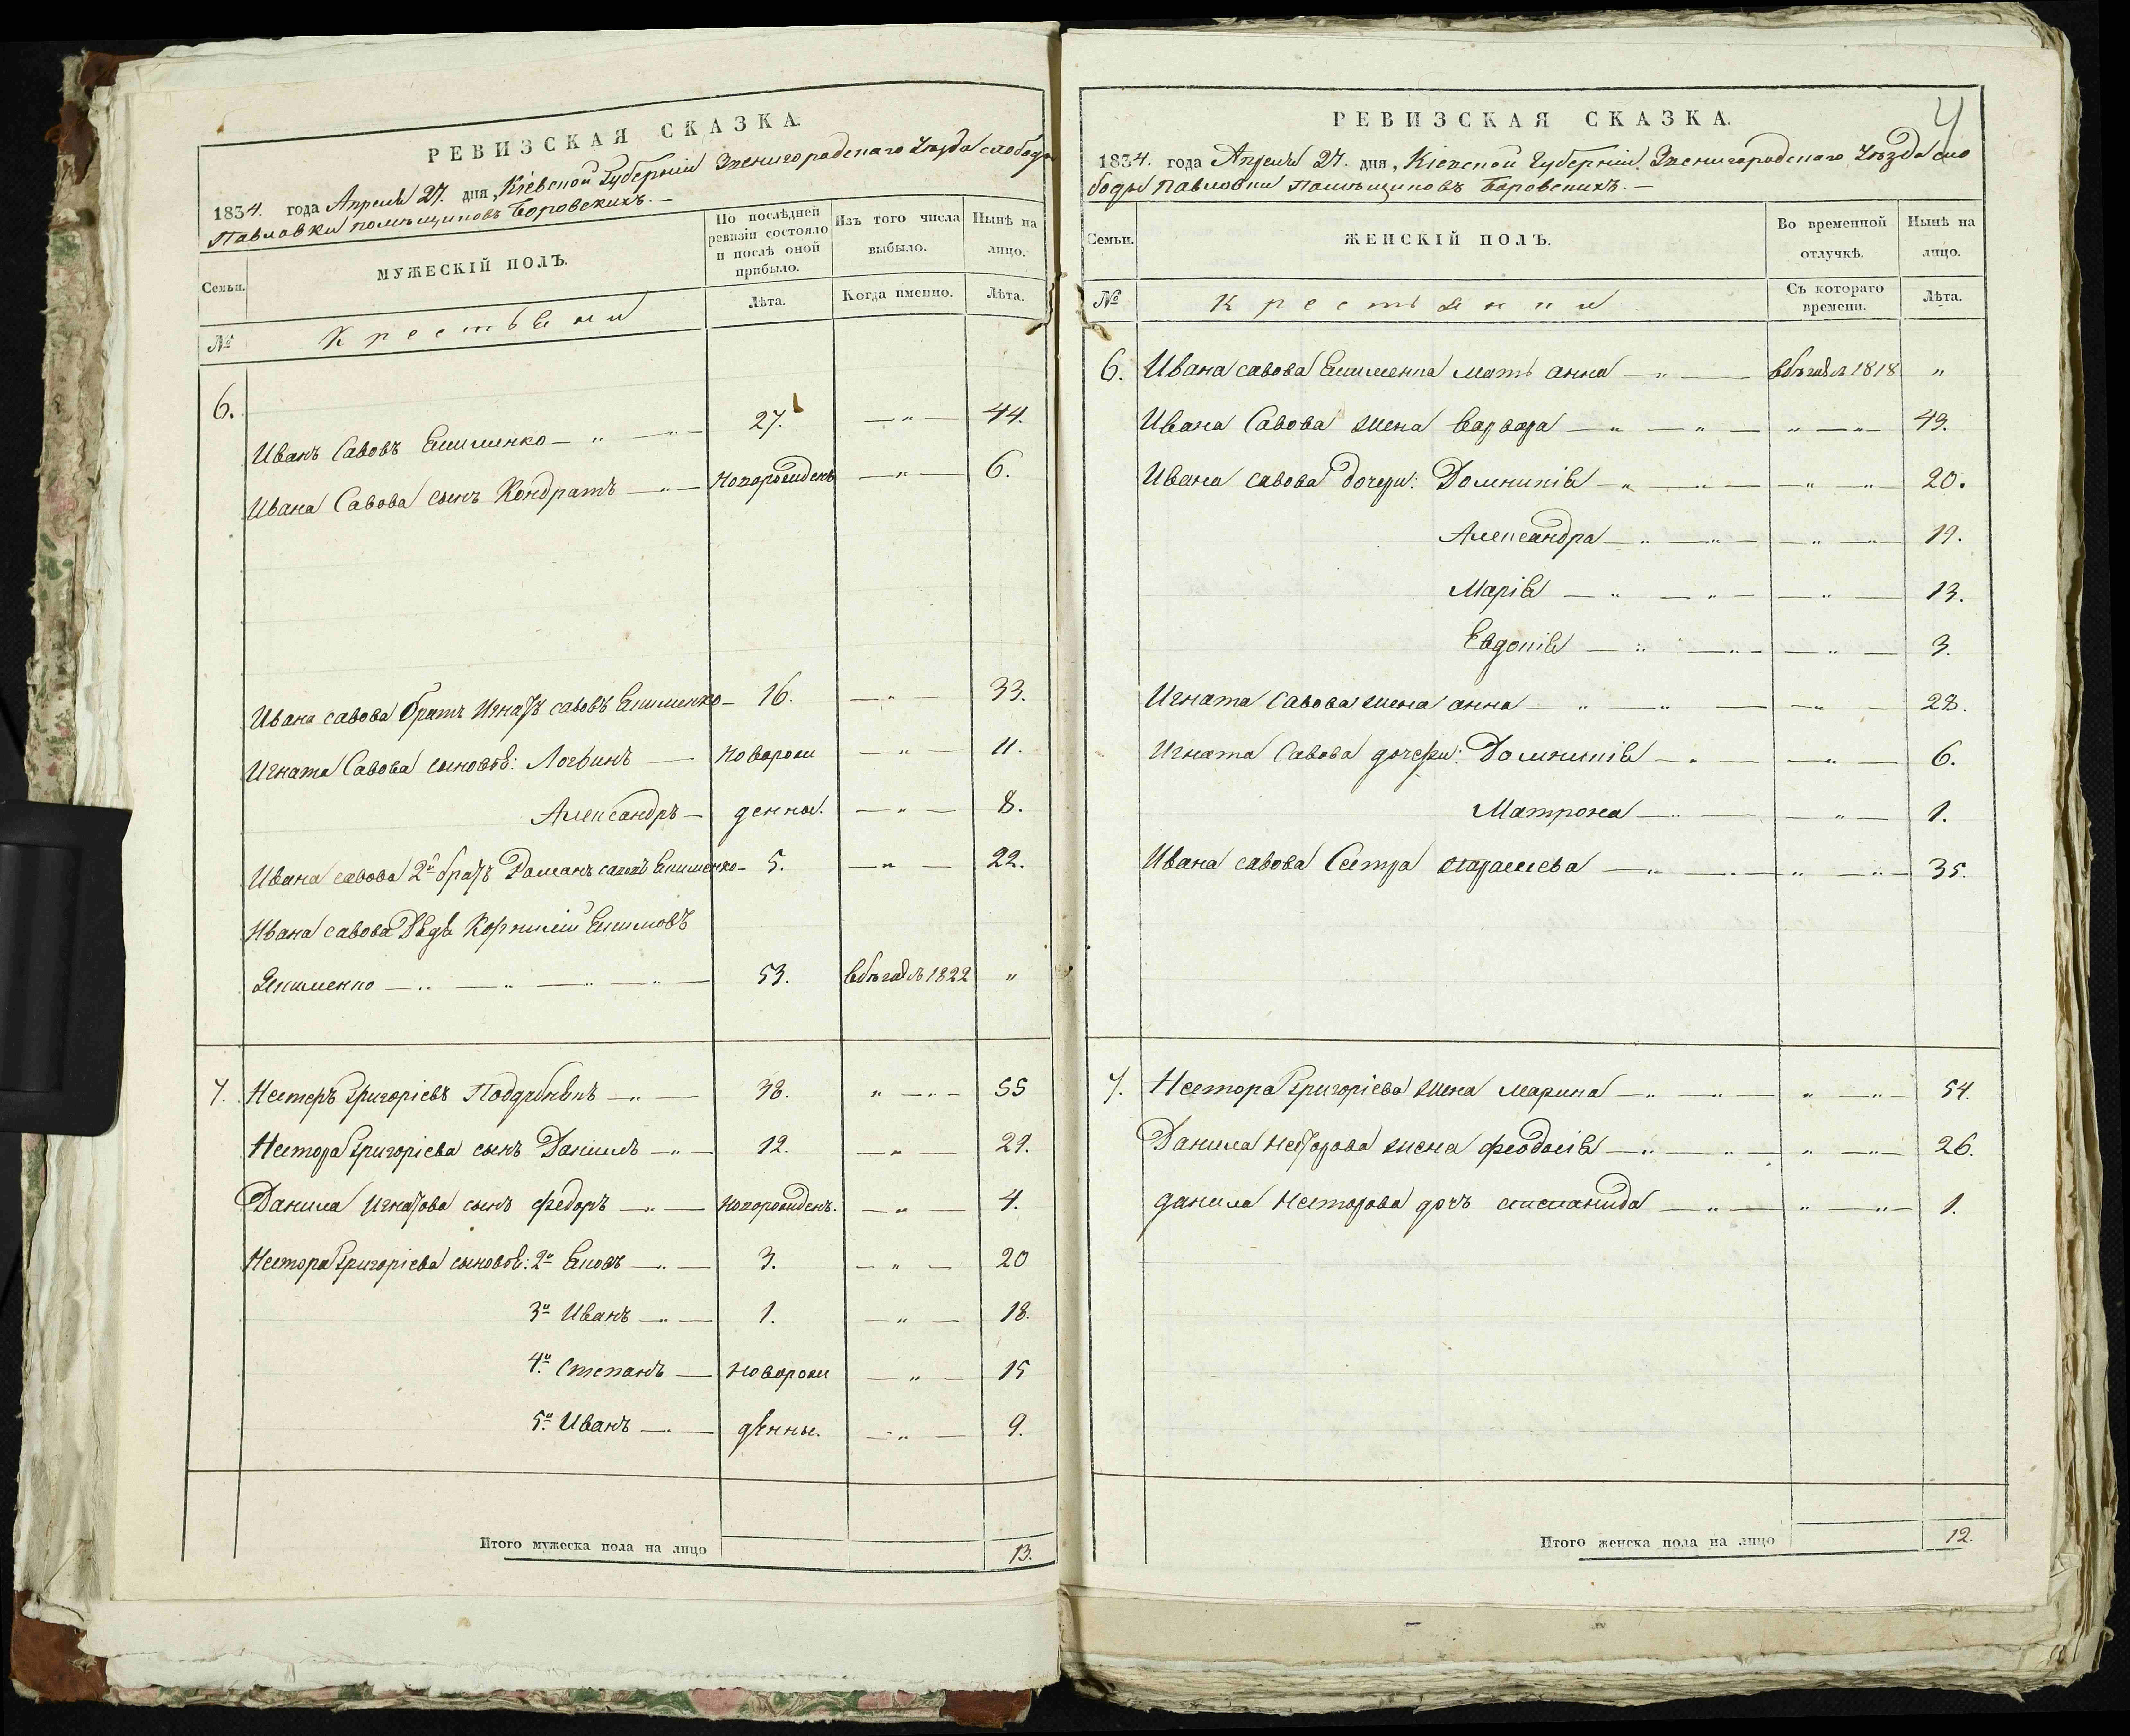 РЕВИЗСКАЯ СКАЗКА.
1834. года Апреля 27. дня, Кіевской Губерніи Звенигородскаго Уѣзда слободы
Павловки помѣщиковъ Боровскихъ.—
Семьи.
МУЖЕСКІЙ ПОЛЪ.
По послѣдней ревизіи состояло и послѣ оной прибыло.
Изъ того числа выбыло.
Нынѣ на лицо.
№
Крестьяни
Лѣта.
Когда именно.
Лѣта.
6.
Иванъ Савовъ Епименко — „ — 27. — „ — 44.
Ивана Савова сынъ Кондратъ — „ — новорожденъ — „ — 6.
Ивана савова братъ Игнатъ савовъ Епименко — 16. — „ — 33.
Игната Савова сыновѣ: Логвинъ — новорож — „ — 11.
Александръ — денны. — „ — 8.
Ивана савова 2й братъ Романъ савовъ Епименко — 5. — „ — 22.
Ивана савова Дѣдъ Корнилій Епимовъ
Епименко — „ — „ — „ — „ — 53. вбѣгахъ 1822 „
7. Нестеръ Григоріевъ Поддубнъкъ — „ — 38. „ — „ — 55
Нестора Григоріева сынъ Даніилъ — „ — 12. — „ — 29.
Данила Игнатова сынъ федоръ — „ — новорожденъ. — „ — 4.
Нестора Григоріева сыновѣ: 2й Яковъ — „ — 3. — „ — 20
3й Иванъ — „ — 1. — „ — 18.
4й Степанъ — новорож — „ — 15
5й Иванъ — „ — дѣнны. — „ — 9.
Итого мужеска пола на лицо 13.
4
РЕВИЗСКАЯ СКАЗКА.
1834. года Апреля 27. дня, Кіевской Губерніи Звенигородскаго Уѣзда сло
боды Павловки Помѣщиковъ Боровскихъ.—
Семьи.
ЖЕНСКІЙ ПОЛЪ.
Во временной отлучкѣ.
Нынѣ на лицо.
№
Крестьянки
Съ котораго времени.
Лѣта.
6. Ивана савова Епименка мать анна — „ — вбѣгахъ 1818 „
Ивана Савова жена варвара — „ — „ — „ — „ — 43.
Ивана савова дочери: Домникія — „ — „ — „ — „ — 20.
Александра — „ — „ — „ — „ — 19.
Марія — „ — „ — „ — 13.
Евдокія — „ — „ — „ — 3.
Игната Савова жена анна — „ — „ — „ — 28.
Игната Савова дочери: Домникія — „ — „ — 6.
Матрона — „ — „ — 1.
Ивана савова Сестра параскева — „ — „ — „ — „ — 35.
7. Нестора Григоріева жена марина — „ — „ — „ — „ — 54.
Данила Несторова жена феодосія — „ — „ — „ — „ — 26.
данила Несторова дочь степанида — „ — „ — „ — 1.
Итого женска пола на лицо 12.